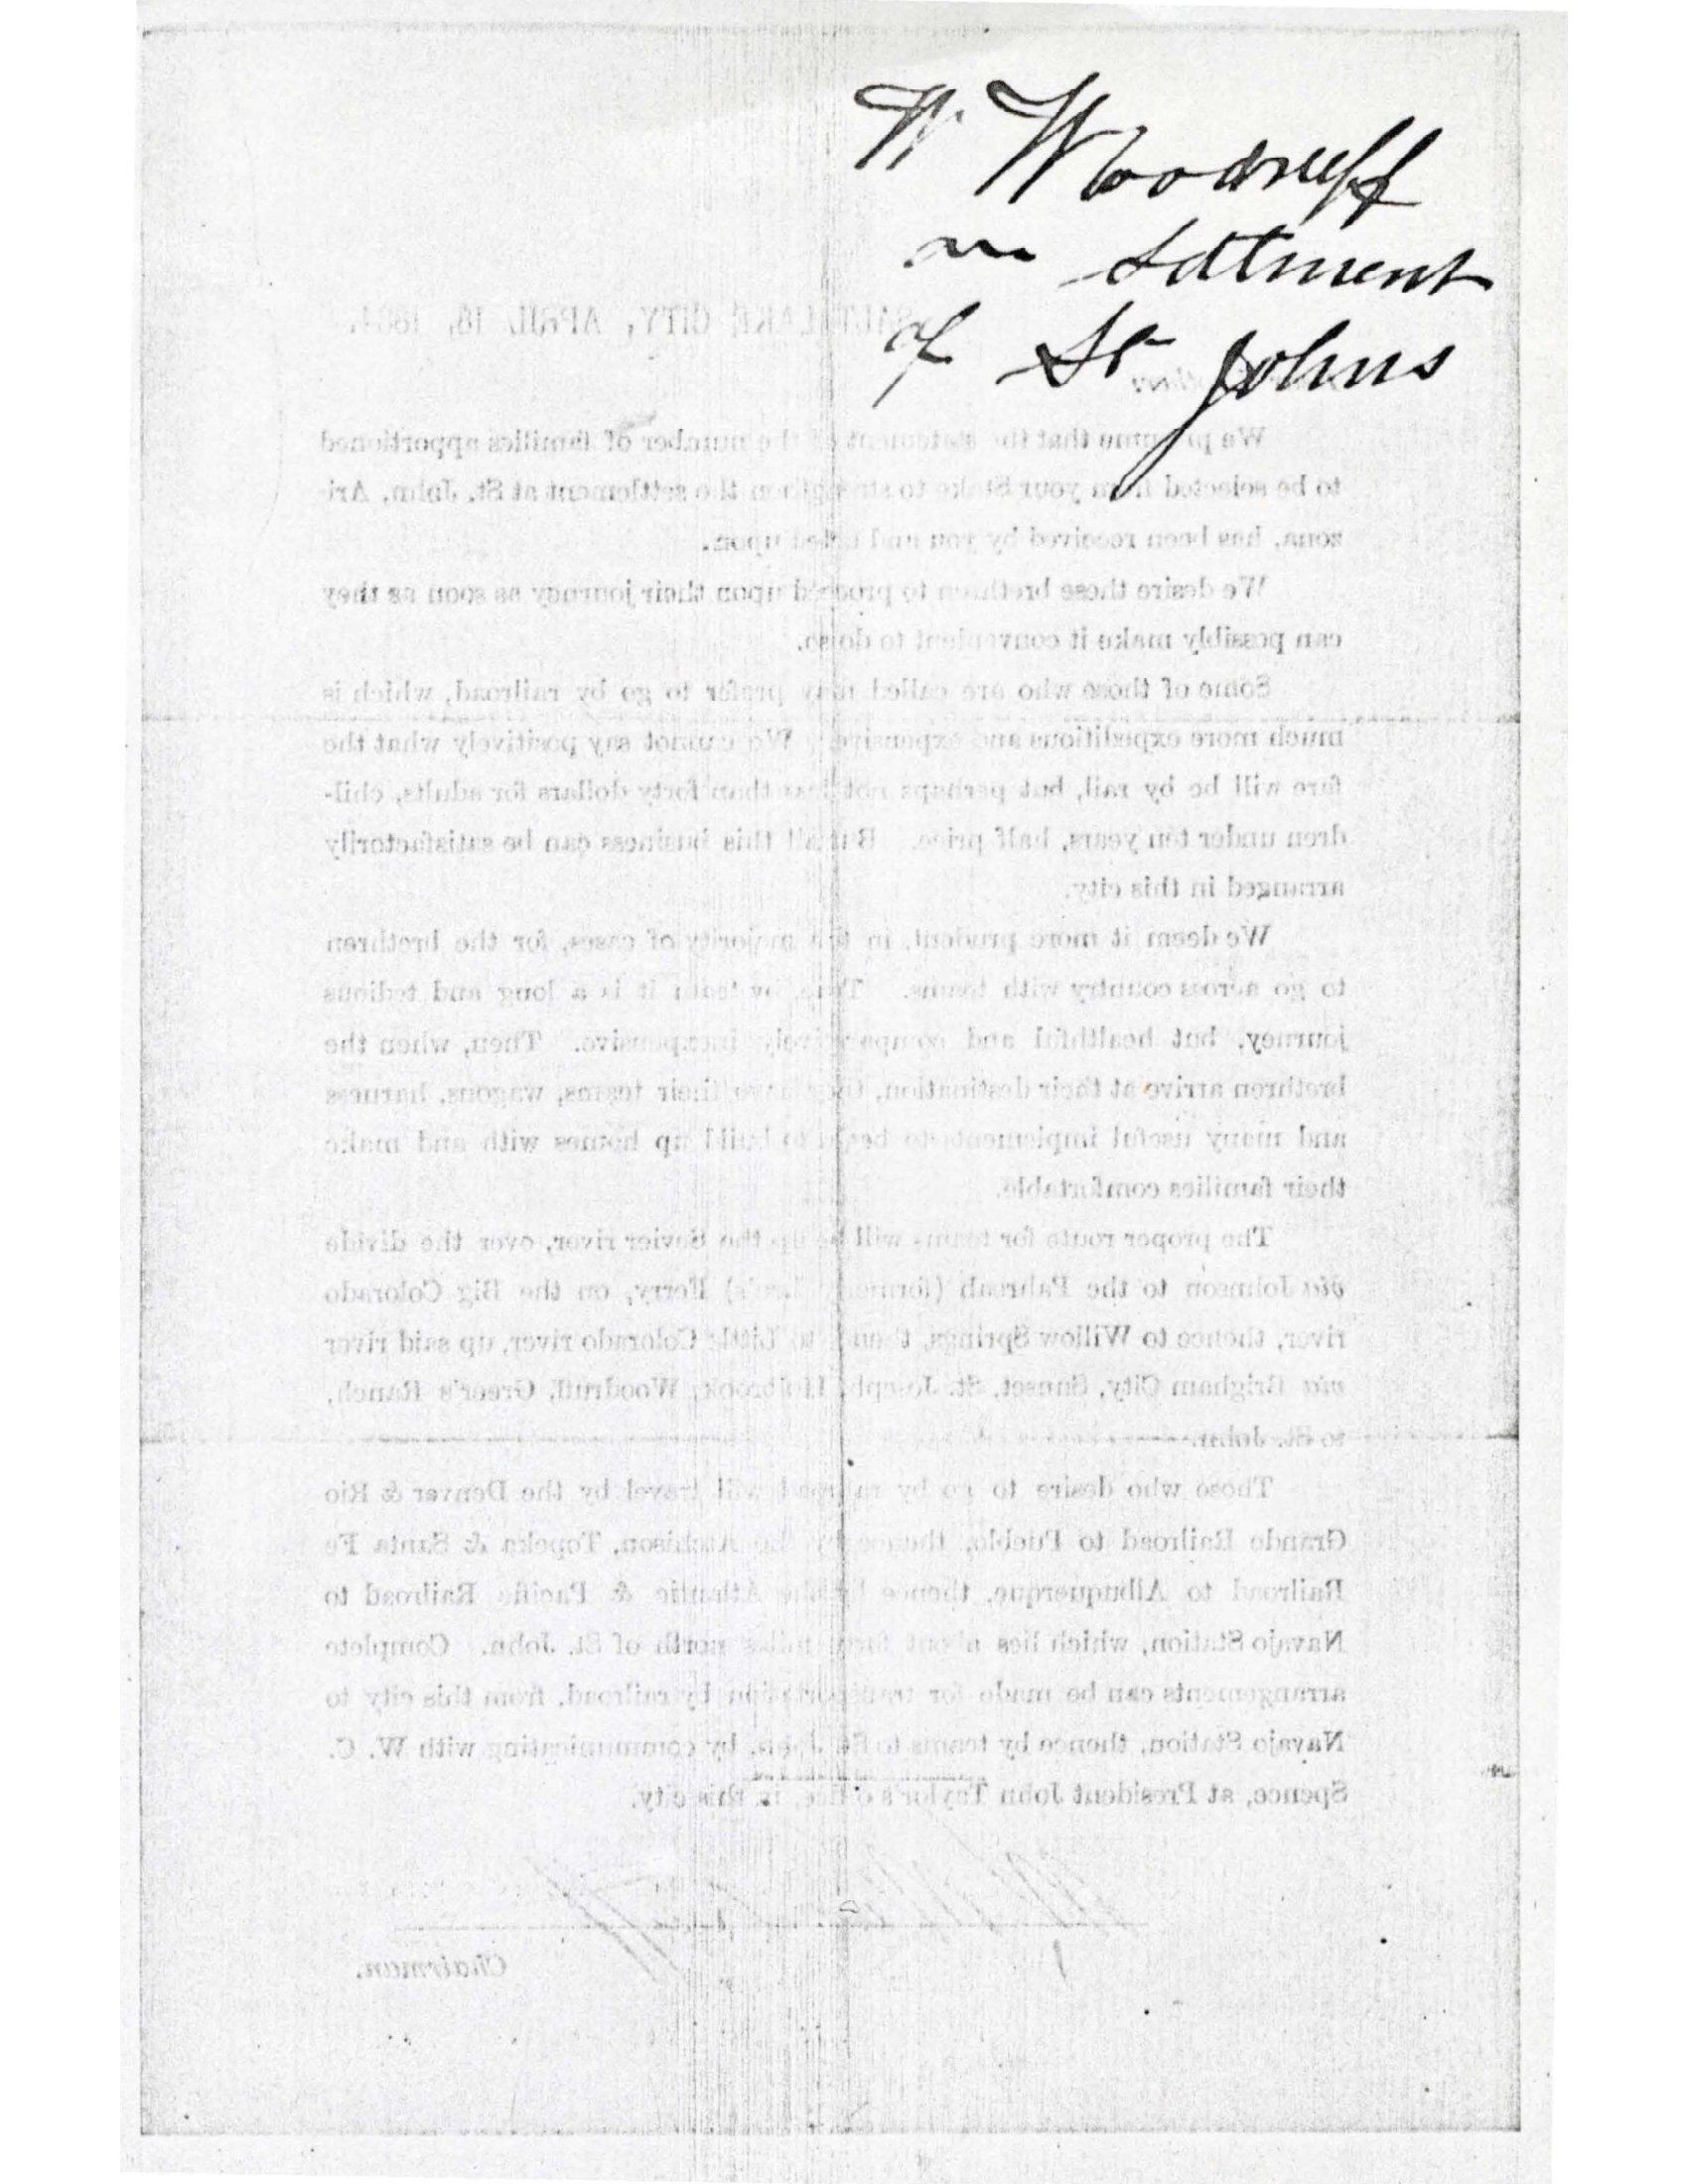 W. Woodruff
on Setlment
of St Johns
SALT LAKE CITY, APRIL 16, 1884.
We presume that the statement of the number of families apportioned
to be selected from your Stake to strengthen the settlement at St. John, Ari-
zona, has been received by you and acted upon.
We desire these brethren to proceed upon their journey as soon as they
can possibly make it convenient to do so.
Some of those who are called may prefer to go by railroad, which is
much more expeditious and expensive. We cannot say positively what the
fare will be by rail, but perhaps not less than forty dollars for adults, chil-
dren under ten years, half price. But all this business can be satisfactorily
arranged in this city.
We deem it more prudent, in the majority of cases, for the brethren
to go across country with teams. True, by team it is a long and tedious
journey, but healthful and comparatively inexpensive. Then, when the
brethren arrive at their destination, they have their teams, wagons, harness
and many useful implements to begin to build up homes with and make
their families comfortable.
The proper route for teams will be up the Sevier river, over the divide
via Johnson to the Pahreah (formerly Lee's) Ferry, on the Big Colorado
river, thence to Willow Springs, thence to Little Colorado river, up said river
via Brigham City, Sunset, St. Joseph, Holbrook, Woodruff, Greer's Ranch,
to St. John.
Those who desire to go by railroad will travel by the Denver & Rio
Grande Railroad to Pueblo, thence by the Atchison, Topeka & Santa Fe
Railroad to Albuquerque, thence by the Atlantic & Pacific Railroad to
Navajo Station, which lies about forty miles north of St. John. Complete
arrangements can be made for transportation by railroad, from this city to
Navajo Station, thence by teams to St. John, by communicating with W. C.
Spence, at President John Taylor's office, in this city.
Chairman.